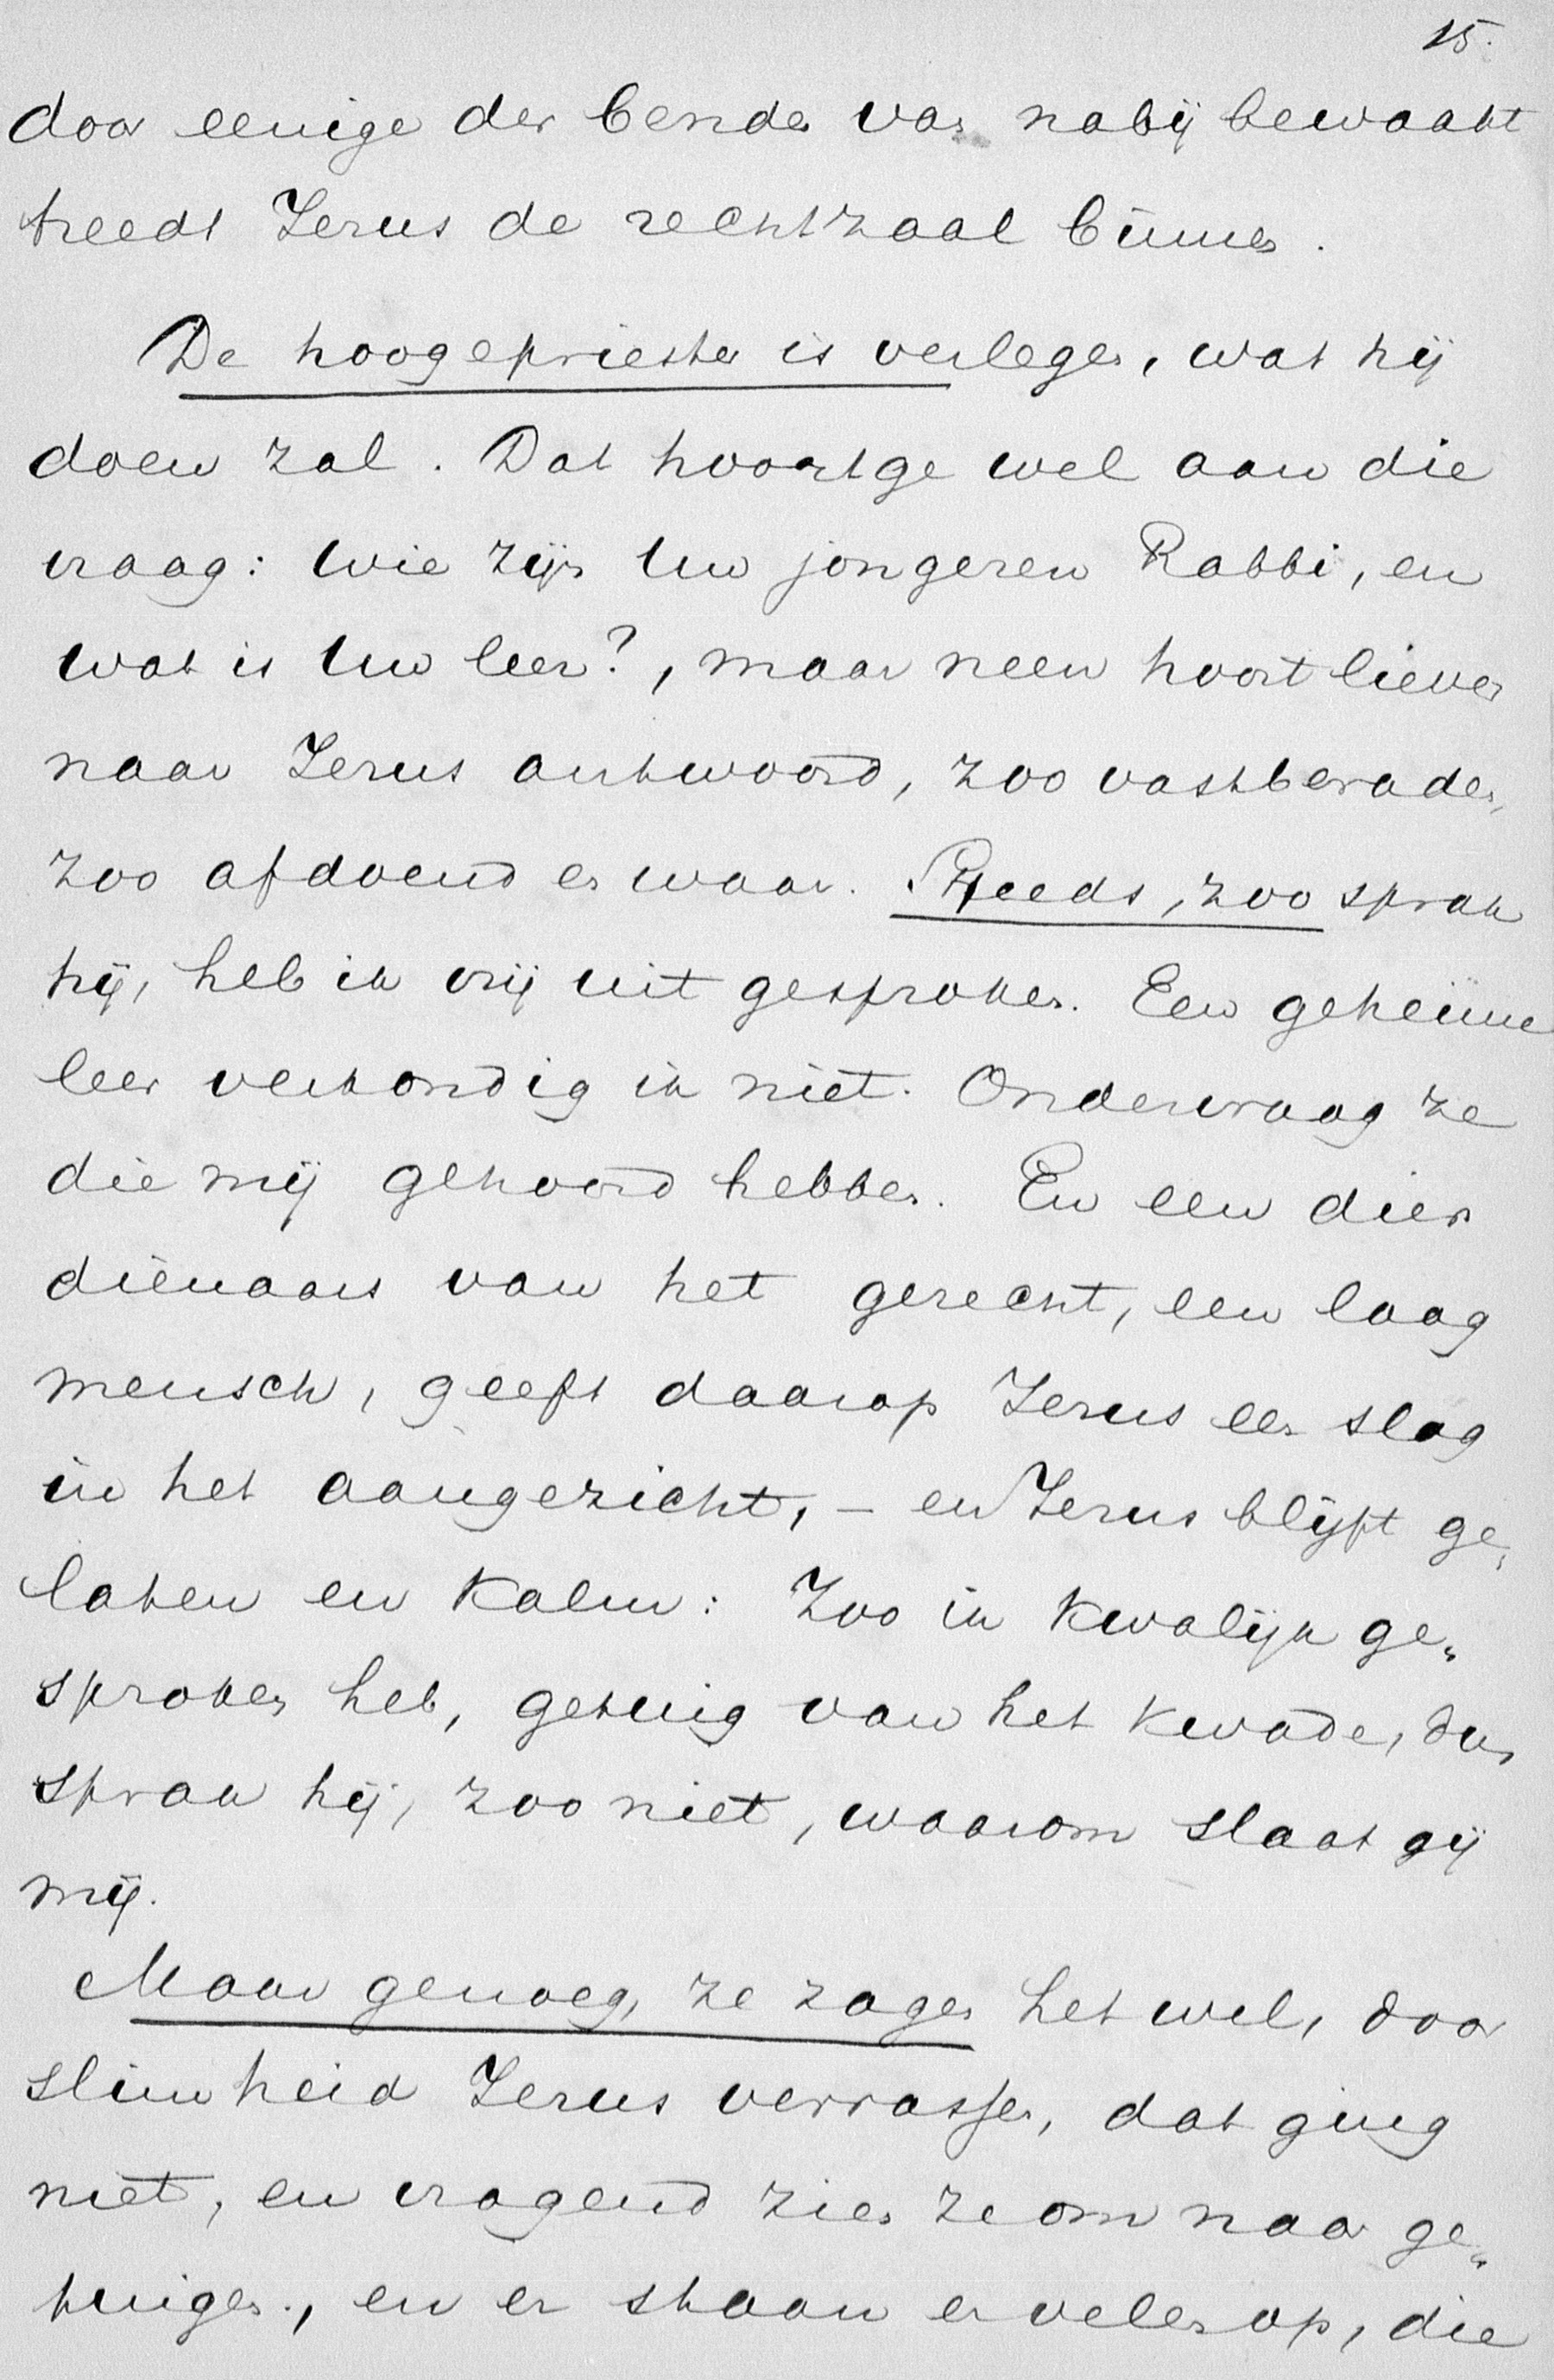 15.
door eenige der bende van nabij bewaakt
treedt Jezus de rechtzaal binnen.
De hoogepriester is verlegen, wat hij
doen zal. Dat hoort ge wel aan die
vraag: Wie zijn Uw jongeren Rabbi, en
wat is Uw leer?, maar neen hoort liever
naar Jezus antwoord, zoo vastberaden,
zoo afdoend en waar. Steeds, zoo sprak
hij, heb ik vrij uit gesproken. Een geheime
leer verkondig ik niet. Ondervraag ze
die mij gehoord hebben. En een dier
dienaars van het gerecht, een laag
mensch, geeft daarop Jezus een slag
in het aangezicht, – en Jezus blijft ge„
laten en kalm: Zoo ik kwalijk ge„
sproken heb, getuig van het kwade, dus
sprak hij, zoo niet, waarom slaat gij
mij.
Maar genoeg, ze zagen het wel, door
slimheid Jezus verrassen, dat ging
niet, en vragend zien ze om naar ge„
tuigen., en er staan er velen op, die